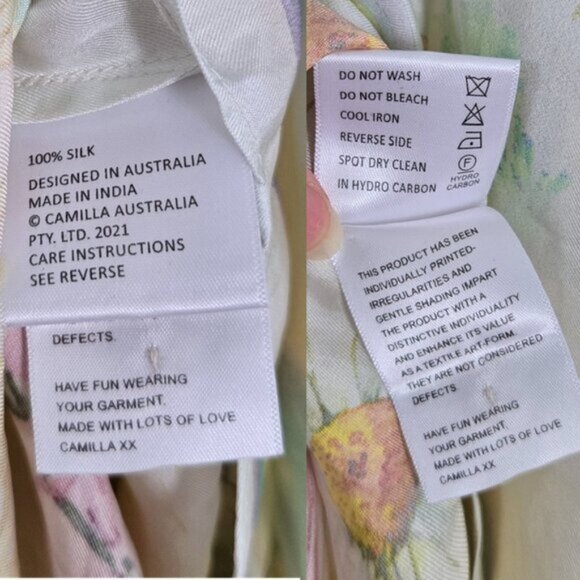 100% SILK
DESIGNED IN AUSTRALIA
MADE IN INDIA
© CAMILLA AUSTRALIA
PTY. LTD. 2021
CARE INSTRUCTIONS
SEE REVERSE
DEFECTS.
HAVE FUN WEARING
YOUR GARMENT.
MADE WITH LOTS OF LOVE
CAMILLA XX
DO NOT WASH
DO NOT BLEACH
COOL IRON
REVERSE SIDE
SPOT DRY CLEAN
IN HYDRO CARBON
F
HYDRO
CARBON
THIS PRODUCT HAS BEEN
INDIVIDUALLY PRINTED-
IRREGULARITIES AND
GENTLE SHADING IMPART
THE PRODUCT WITH A
DISTINCTIVE INDIVIDUALITY
AND ENHANCE ITS VALUE
AS A TEXTILE ART-FORM.
THEY ARE NOT CONSIDERED
DEFECTS.
HAVE FUN WEARING
YOUR GARMENT.
MADE WITH LOTS OF LOVE
CAMILLA XX